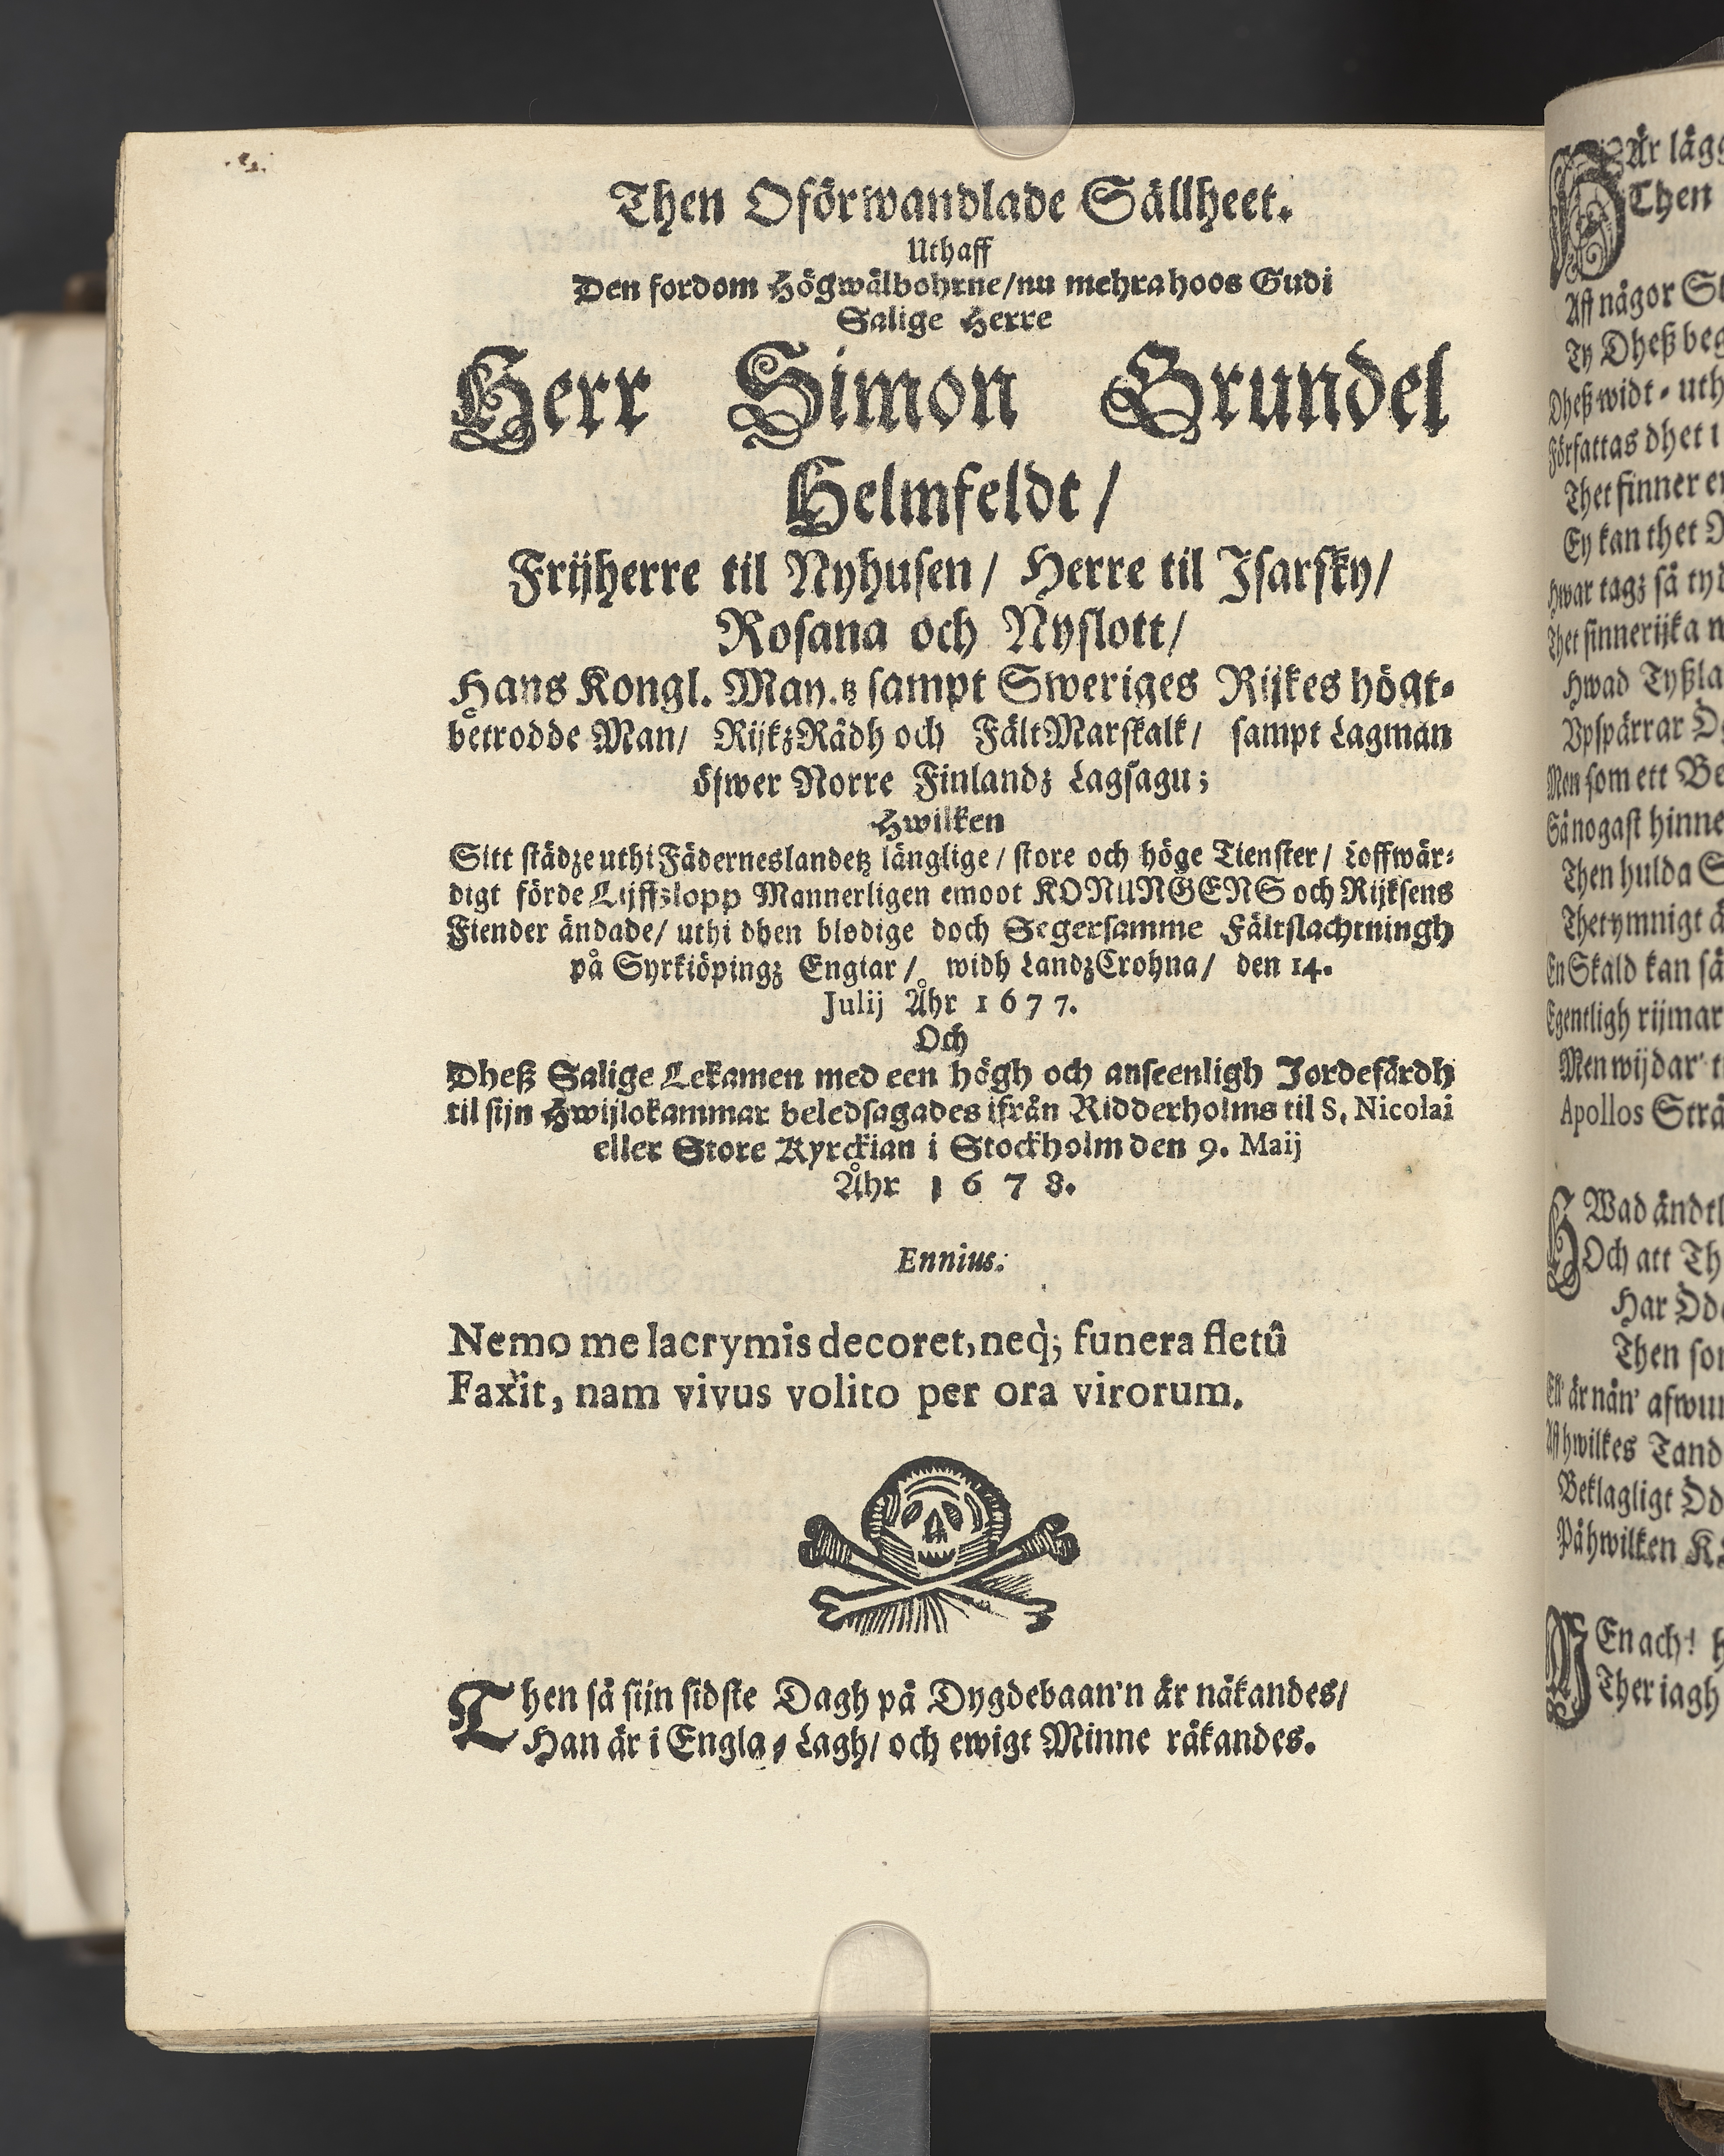 Then Oförwandlade Sällheet.
Uthaff
Den fordom Högwälbohrne/nu mehra hoos Gudi
Salige Herre
Herr Simon Grundel
Helmfeldt/
Frijherre til Nyhusen/ Herre til Isarsky/
Rosana och Nyslott/
Hans Kongl. May.tz sampt Sweriges Rijkes högt-
betrodde Man/ RijkzRådh och FältMarskalk/ sampt Lagman
öfwer Norre Finlandz Lagsagu;
Hwilken
Sitt städze uthi Fäderneslandetz länglige/ store och höge Tienster/ Loffwär-
digt förde Lijffzlopp Mannerligen emoot KONUNGENS och Rijksens
Fiender ändade/ uthi dhen blodige doch Segersamme Fältslachtningh
på Syrkiöpingz Engiar/ widh LandzCrohna/ den 14.
Julij Åhr 1677.
Och
Dheß Salige Lekamen med een högh och anseenligh Jordefärdh
til sijn Hwijlokammar beledsagades ifrån Ridderholms til S. Nicolai
eller Store Kyrckian i Stockholm den 9. Maij
Åhr 1678.
Ennius.
Nemo me lacrymis decoret, neq̀; funera fletû
Faxit, nam vivus volito per ora virorum.
Then så sijn sidste Dagh på Dygdebaan'n är nåkandes/
Han är i Engla-Lagh/ och ewigt Minne råkandes.
Är lägg
Then
Aff någor
Ty Dheß beg
Dheß widt-uth
Författas dhet i
Thet finner
Ey kan thet
Hwar tagz så tyd
Thet sinnerijka
Hwad Tyßla
Vpspärrar
Men som ett Be
Så nogast hinne
Then hulda
Thet ymnigt
En Skald kan så
Egentligh rijmar
Men wijdar'
Apollos Strå
HWad ändtl
Och att Th
Har Öde
Then som
Ell' är nån' afwun
Aff hwilkes Tand
Beklagligt Öd
På hwilken
MEn ach!
Ther iagh